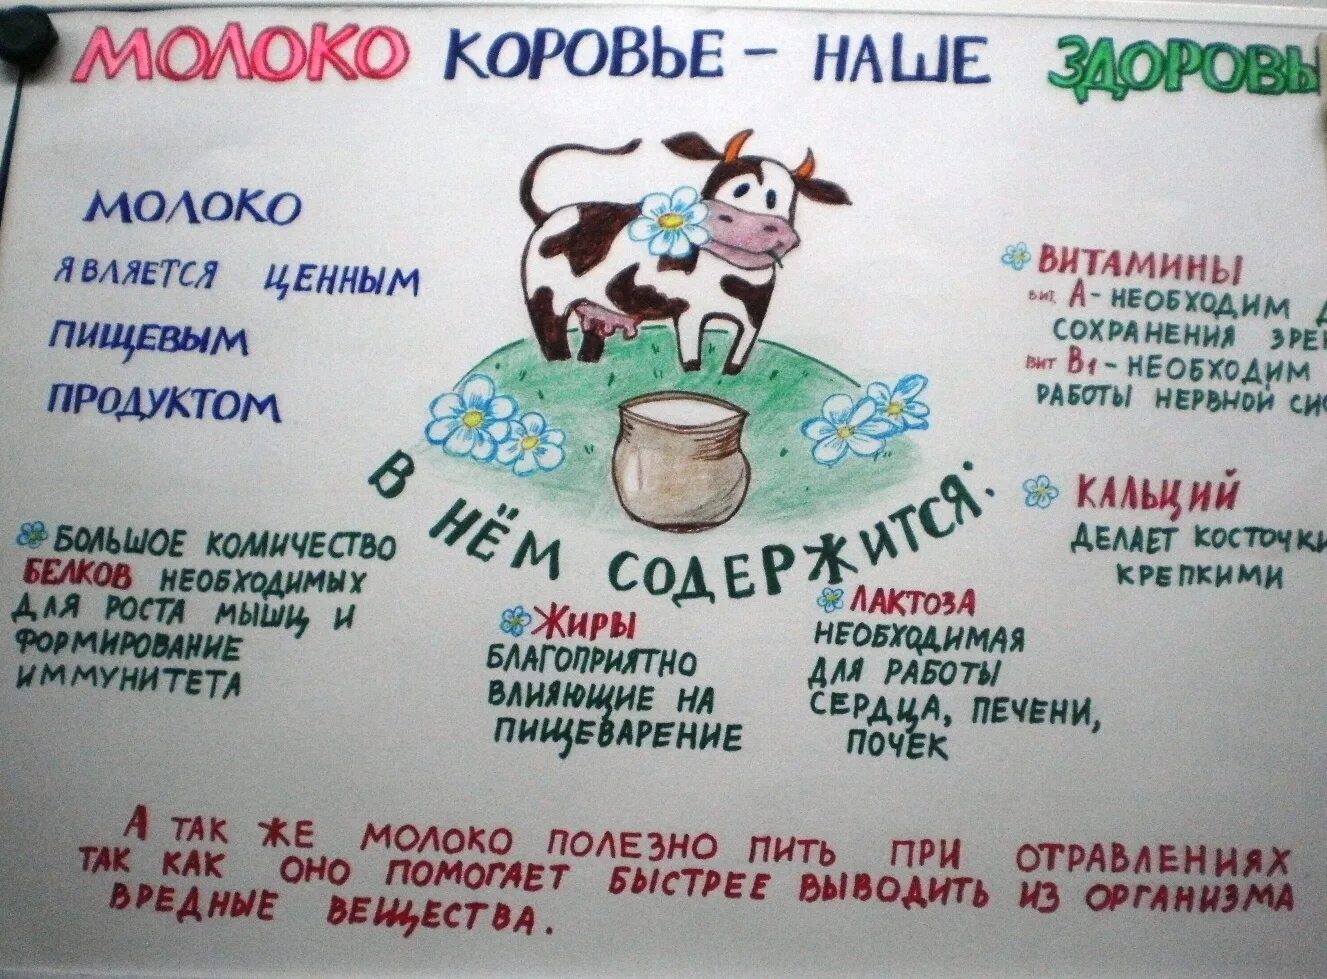 МОЛОКО КОРОВЬЕ - НАШЕ ЗДОРОВЬ
МОЛОКО
ЯВЛЯЕТСЯ ЦЕННЫМ
ПИЩЕВЫМ
ПРОДУКТОМ
В НЁМ СОДЕРЖИТСЯ:
БОЛЬШОЕ КОЛИЧЕСТВО
БЕЛКОВ НЕОБХОДИМЫХ
ДЛЯ РОСТА МЫШЦ И
ФОРМИРОВАНИЕ
ИММУНИТЕТА
ЖИРЫ
БЛАГОПРИЯТНО
ВЛИЯЮЩИЕ НА
ПИЩЕВАРЕНИЕ
ЛАКТОЗА
НЕОБХОДИМАЯ
ДЛЯ РАБОТЫ
СЕРДЦА, ПЕЧЕНИ,
ПОЧЕК
ВИТАМИНЫ
ВИТ. А - НЕОБХОДИМ
СОХРАНЕНИЯ ЗРЕ
ВИТ В1 - НЕОБХОДИМ
РАБОТЫ НЕРВНОЙ СИ
КАЛЬЦИЙ
ДЕЛАЕТ КОСТОЧКИ
КРЕПКИМИ
А ТАК ЖЕ МОЛОКО ПОЛЕЗНО ПИТЬ ПРИ ОТРАВЛЕНИЯХ
ТАК КАК ОНО ПОМОГАЕТ БЫСТРЕЕ ВЫВОДИТЬ ИЗ ОРГАНИЗМА
ВРЕДНЫЕ ВЕЩЕСТВА.